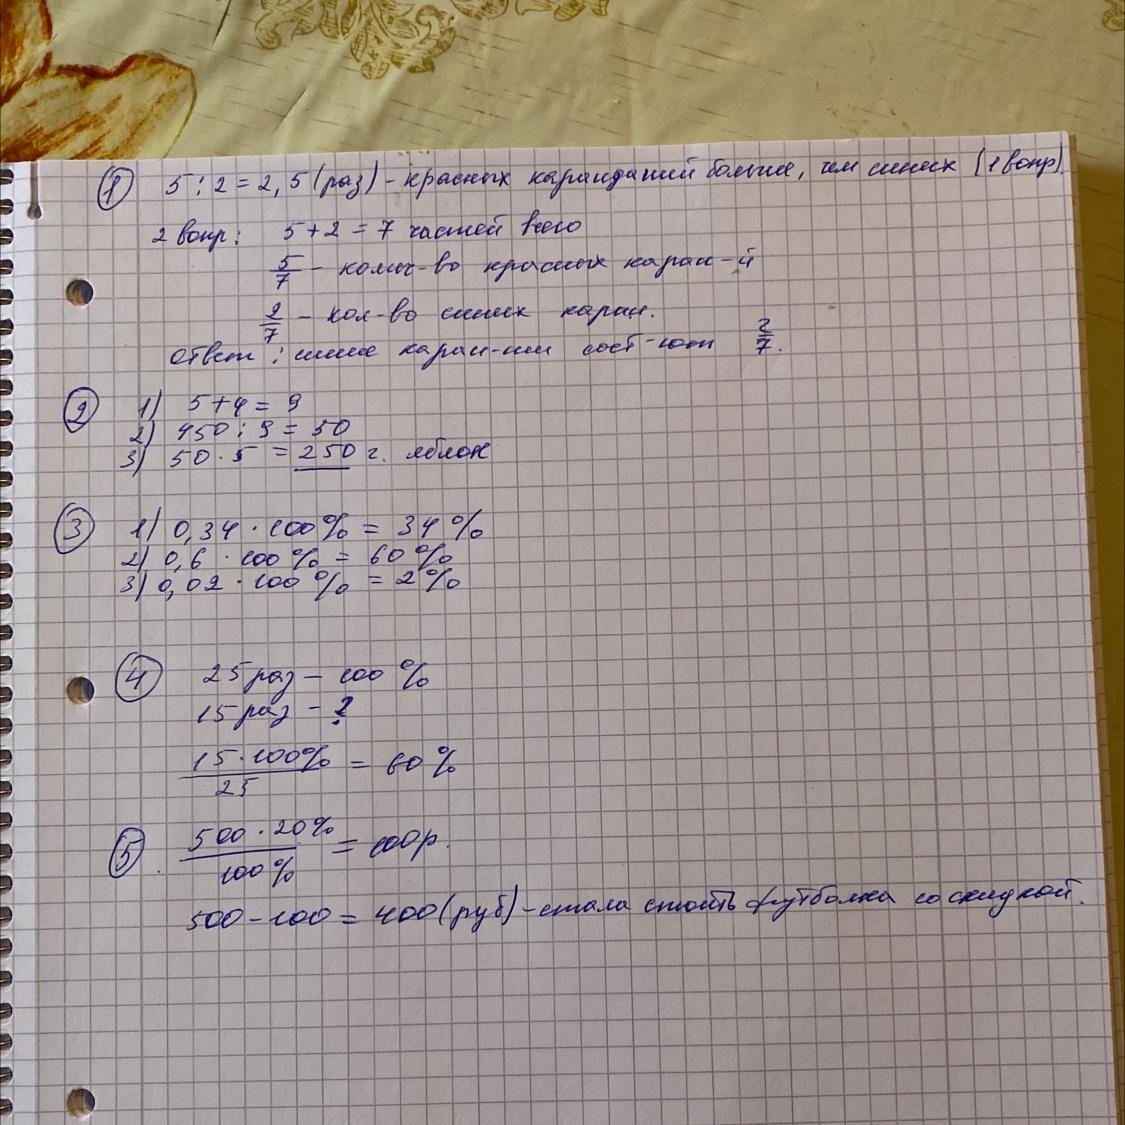 1 5 : 2 = 2,5 (раз) - красных карандашей больше, чем синих (1 вопр).
2 вопр: 5 + 2 = 7 частей всего
5/7 - колич-во красных каран-й
2/7 - кол-во синих каран.
Ответ: синие каран-ши сост-ют 2/7.
2 1) 5 + 4 = 9
2) 450 : 9 = 50
3) 50 · 5 = 250 г. яблок
3 1) 0,34 · 100% = 34%
2) 0,6 · 100% = 60%
3) 0,02 · 100% = 2%
4 25 раз - 100%
15 раз - ?
15 · 100% / 25 = 60%
5 500 · 20% / 100% = 100 р.
500 - 100 = 400 (руб) - стала стоить футболка со скидкой.